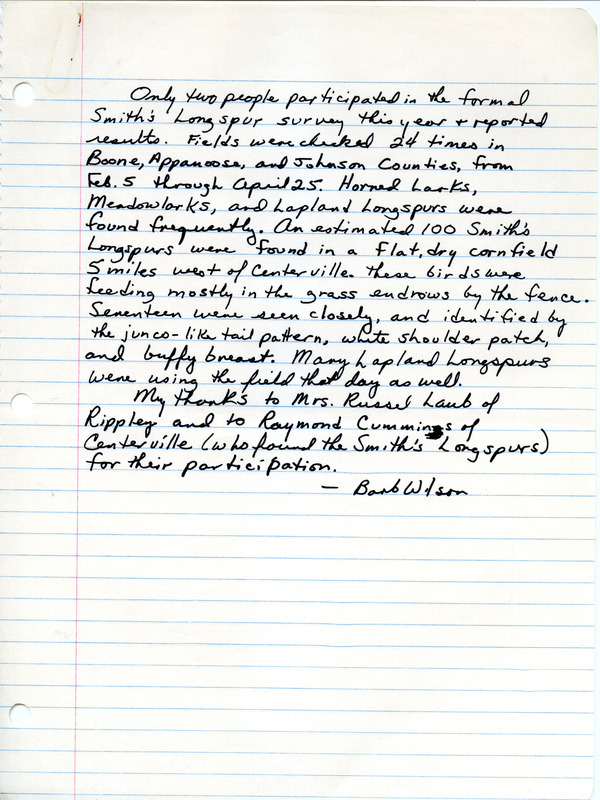 Only two people participated in the formal
Smith's Longspur survey this year + reported
results. Fields were checked 24 times in
Boone, Appanoose, and Johnson Counties, from
Feb. 5 through April 25. Horned Larks,
Meadowlarks, and Lapland Longspurs were
found frequently. An estimated 100 Smith's
Longspurs were found in a flat, dry cornfield
5 miles west of Centerville. These birds were
feeding mostly in the grass endrows by the fence.
Seventeen were seen closely, and identified by
the junco-like tail pattern, white shoulder patch,
and buffy breast. Many Lapland Longspurs
were using the field that day as well.
My thanks to Mrs. Russel Laub of
Rippley and to Raymond Cummings of
Centerville (who found the Smith's Longspurs)
for their participation.
— Barb Wilson